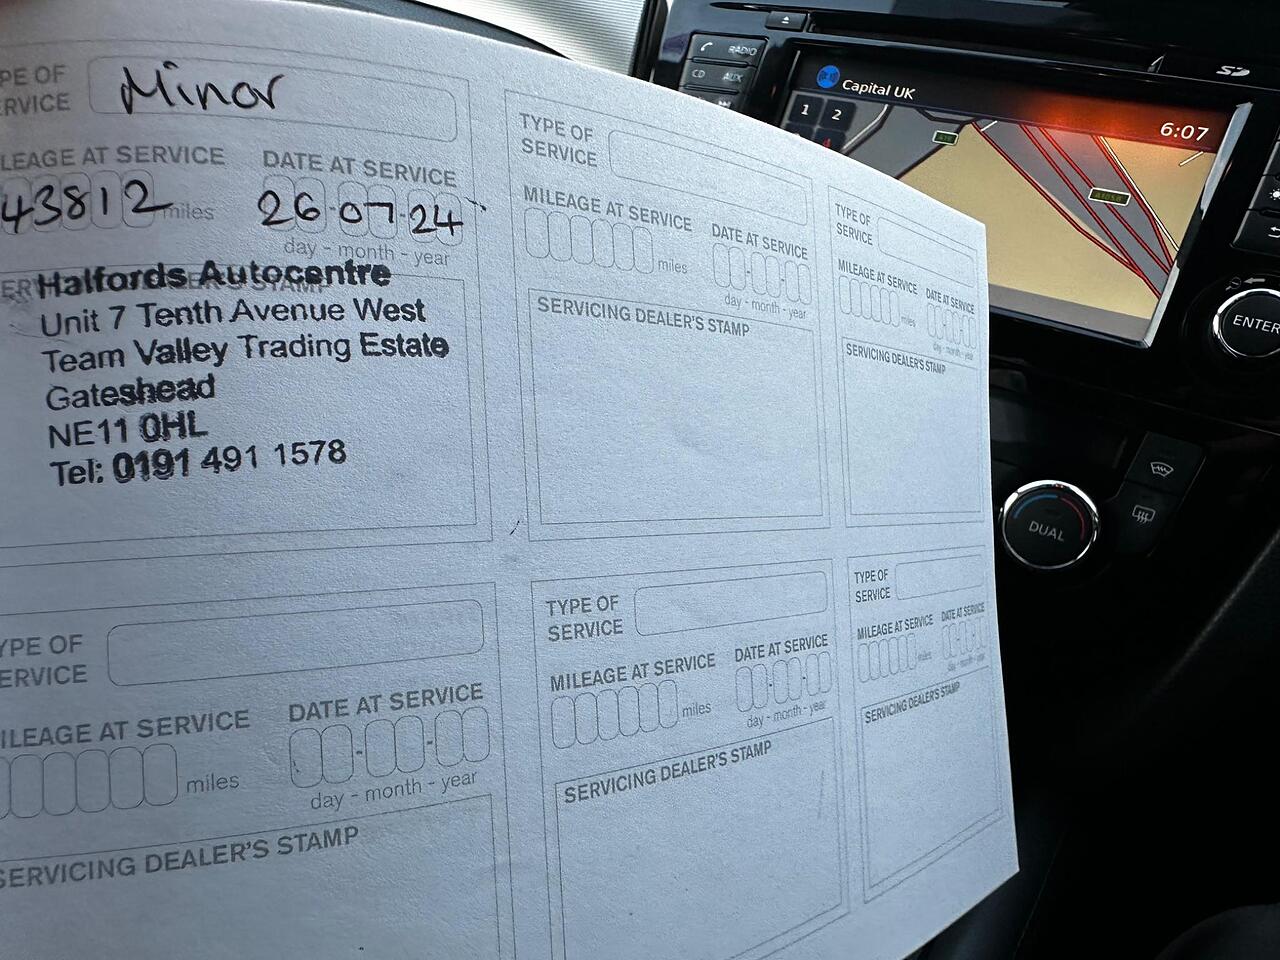 PE OF
RVICE
Minor
LEAGE AT SERVICE
43812 miles
DATE AT SERVICE
26-07-24
day - month - year
Halfords Autocentre
Unit 7 Tenth Avenue West
Team Valley Trading Estate
Gateshead
NE11 0HL
Tel: 0191 491 1578
TYPE OF
SERVICE
MILEAGE AT SERVICE
miles
DATE AT SERVICE
day - month - year
SERVICING DEALER'S STAMP
TYPE OF
SERVICE
MILEAGE AT SERVICE
miles
DATE AT SERVICE
day - month - year
SERVICING DEALER'S STAMP
YPE OF
ERVICE
ILEAGE AT SERVICE
miles
DATE AT SERVICE
day - month - year
SERVICING DEALER'S STAMP
TYPE OF
SERVICE
MILEAGE AT SERVICE
miles
DATE AT SERVICE
day - month - year
SERVICING DEALER'S STAMP
TYPE OF
SERVICE
MILEAGE AT SERVICE
miles
DATE AT SERVICE
day - month - year
SERVICING DEALER'S STAMP
RADIO
CD AUX
SD
Capital UK
1 2
4
6:07
ENTER
DUAL